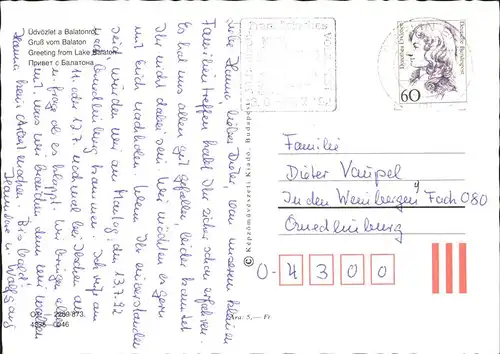 Üdvözlet a Balatonról
Gruß vom Balaton
Greeting from Lake Balaton
Привет с Балатона
Liebe Hanna, lieber Dieter, von unserem kleinen
Familientreffen habt Ihr sicher schon erfahren.
Es hat uns allen gut gefallen, leider konntet
Ihr nicht dabei sein. Wir möchten es gern
mit Euch nachholen. Wenn Ihr einverstanden
seid, würden wir am Montag, den 13.7.92
nach Quedlinburg kommen. Ich rufe am
11. oder 12.7. nochmal bei
u. frage ob es klappt. Wir bringen alles
mit, was wir brauchen, denn Ihr sollt
Euch keine Arbeit machen. Bis bald!
Hannelore u. Wolfgang
2059/873.
4335—046
Ára: 3,— Ft
© Képzőművészeti Kiadó, Budapest
Dorothea Erxleben
Deutsche Bundespost
60
Familie
Dieter Vaupel
In den Weinbergen 4 Fach 080
Quedlinburg
O-4300